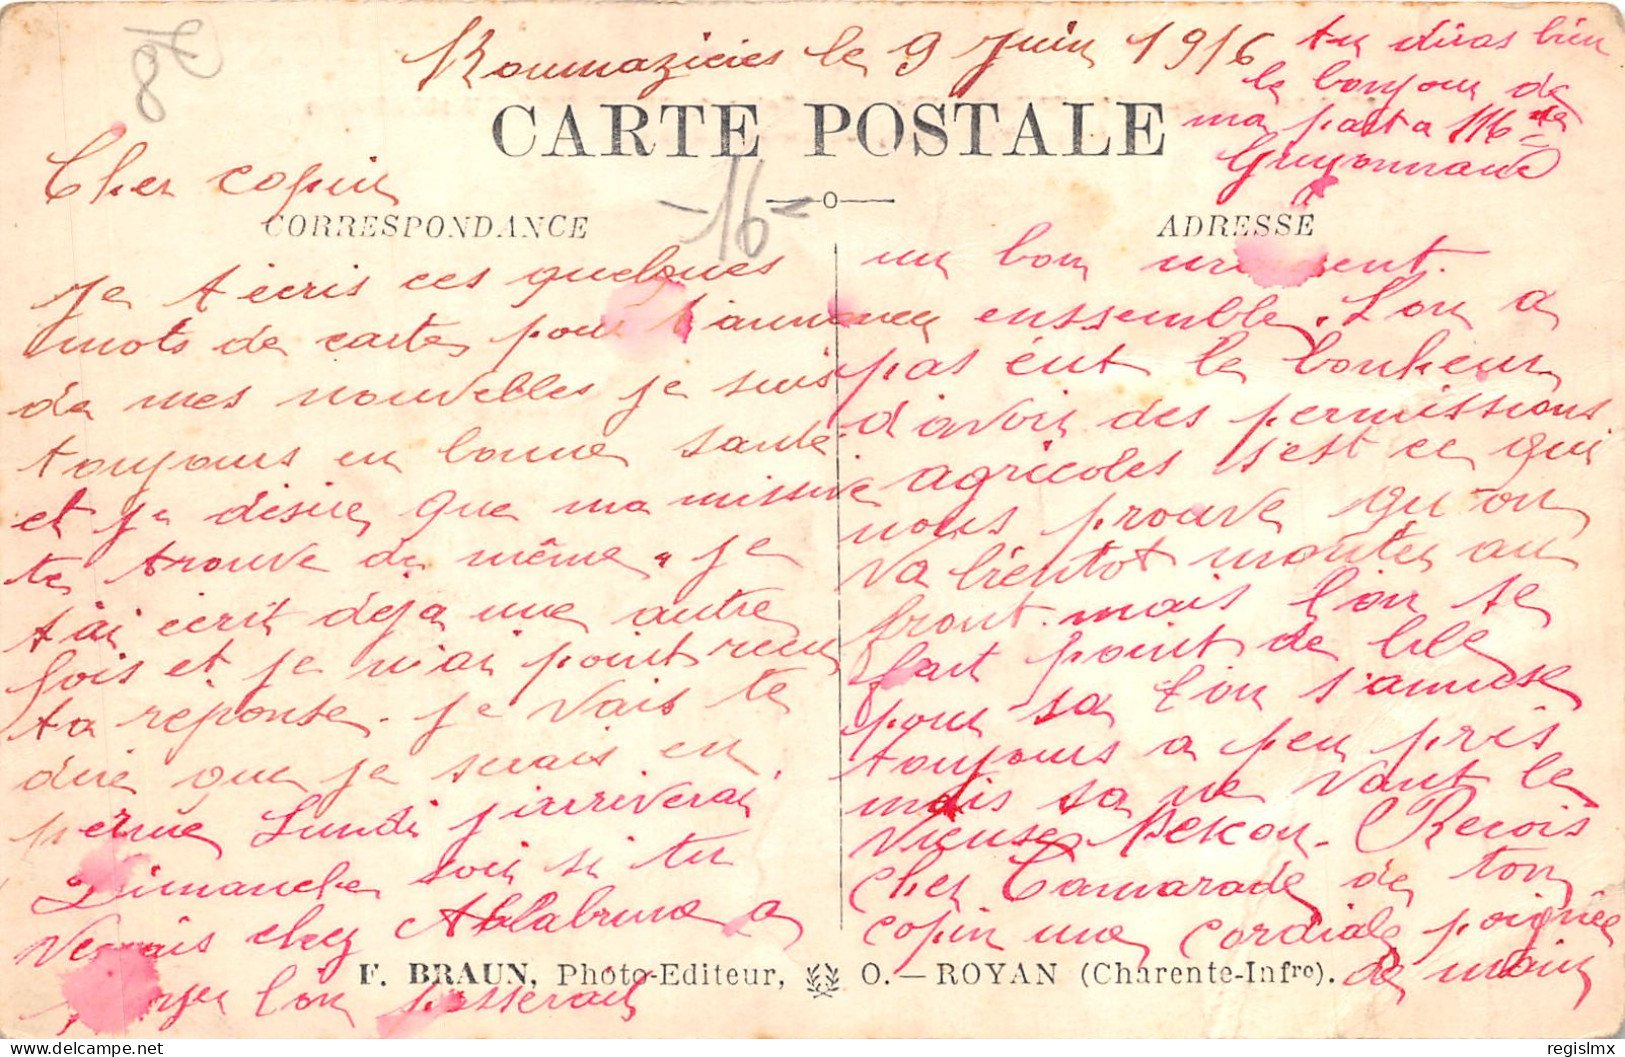 8€
le 9 Juin 1916
CARTE POSTALE
tu diras bien
le bonjour de
ma part a
Cher copin
-16-
CORRESPONDANCE
ADRESSE
Je t'écris ces quelques
mots de cartes pour t'annoncer
de mes nouvelles je suis
toujours en bonne santé
et je désire que ma missive
te trouve de même. je
t'ai écrit déja une autre
fois et je n'ai point recu
ta réponse. je vais te
dire que je serais en
perme Lundi j'arriverai
Dimanche soir si tu
Venais chez a
l'on passerait
un bon
enssemble. L'on a
pas éut le bonheur
d'avoir des permissions
agricoles s'est ce qui
nous prouve qu'on
va bientot monter au
front. mais l'on se
fait point de bile
pour sa l'on s'amuse
toujours a peu pris
mais sa ne vaut le
vieuse Recois
cher Camarade de ton
copin une cordiale poignée
de main
F. BRAUN, Photo-Editeur, O. — ROYAN (Charente-Infre).
regislmx